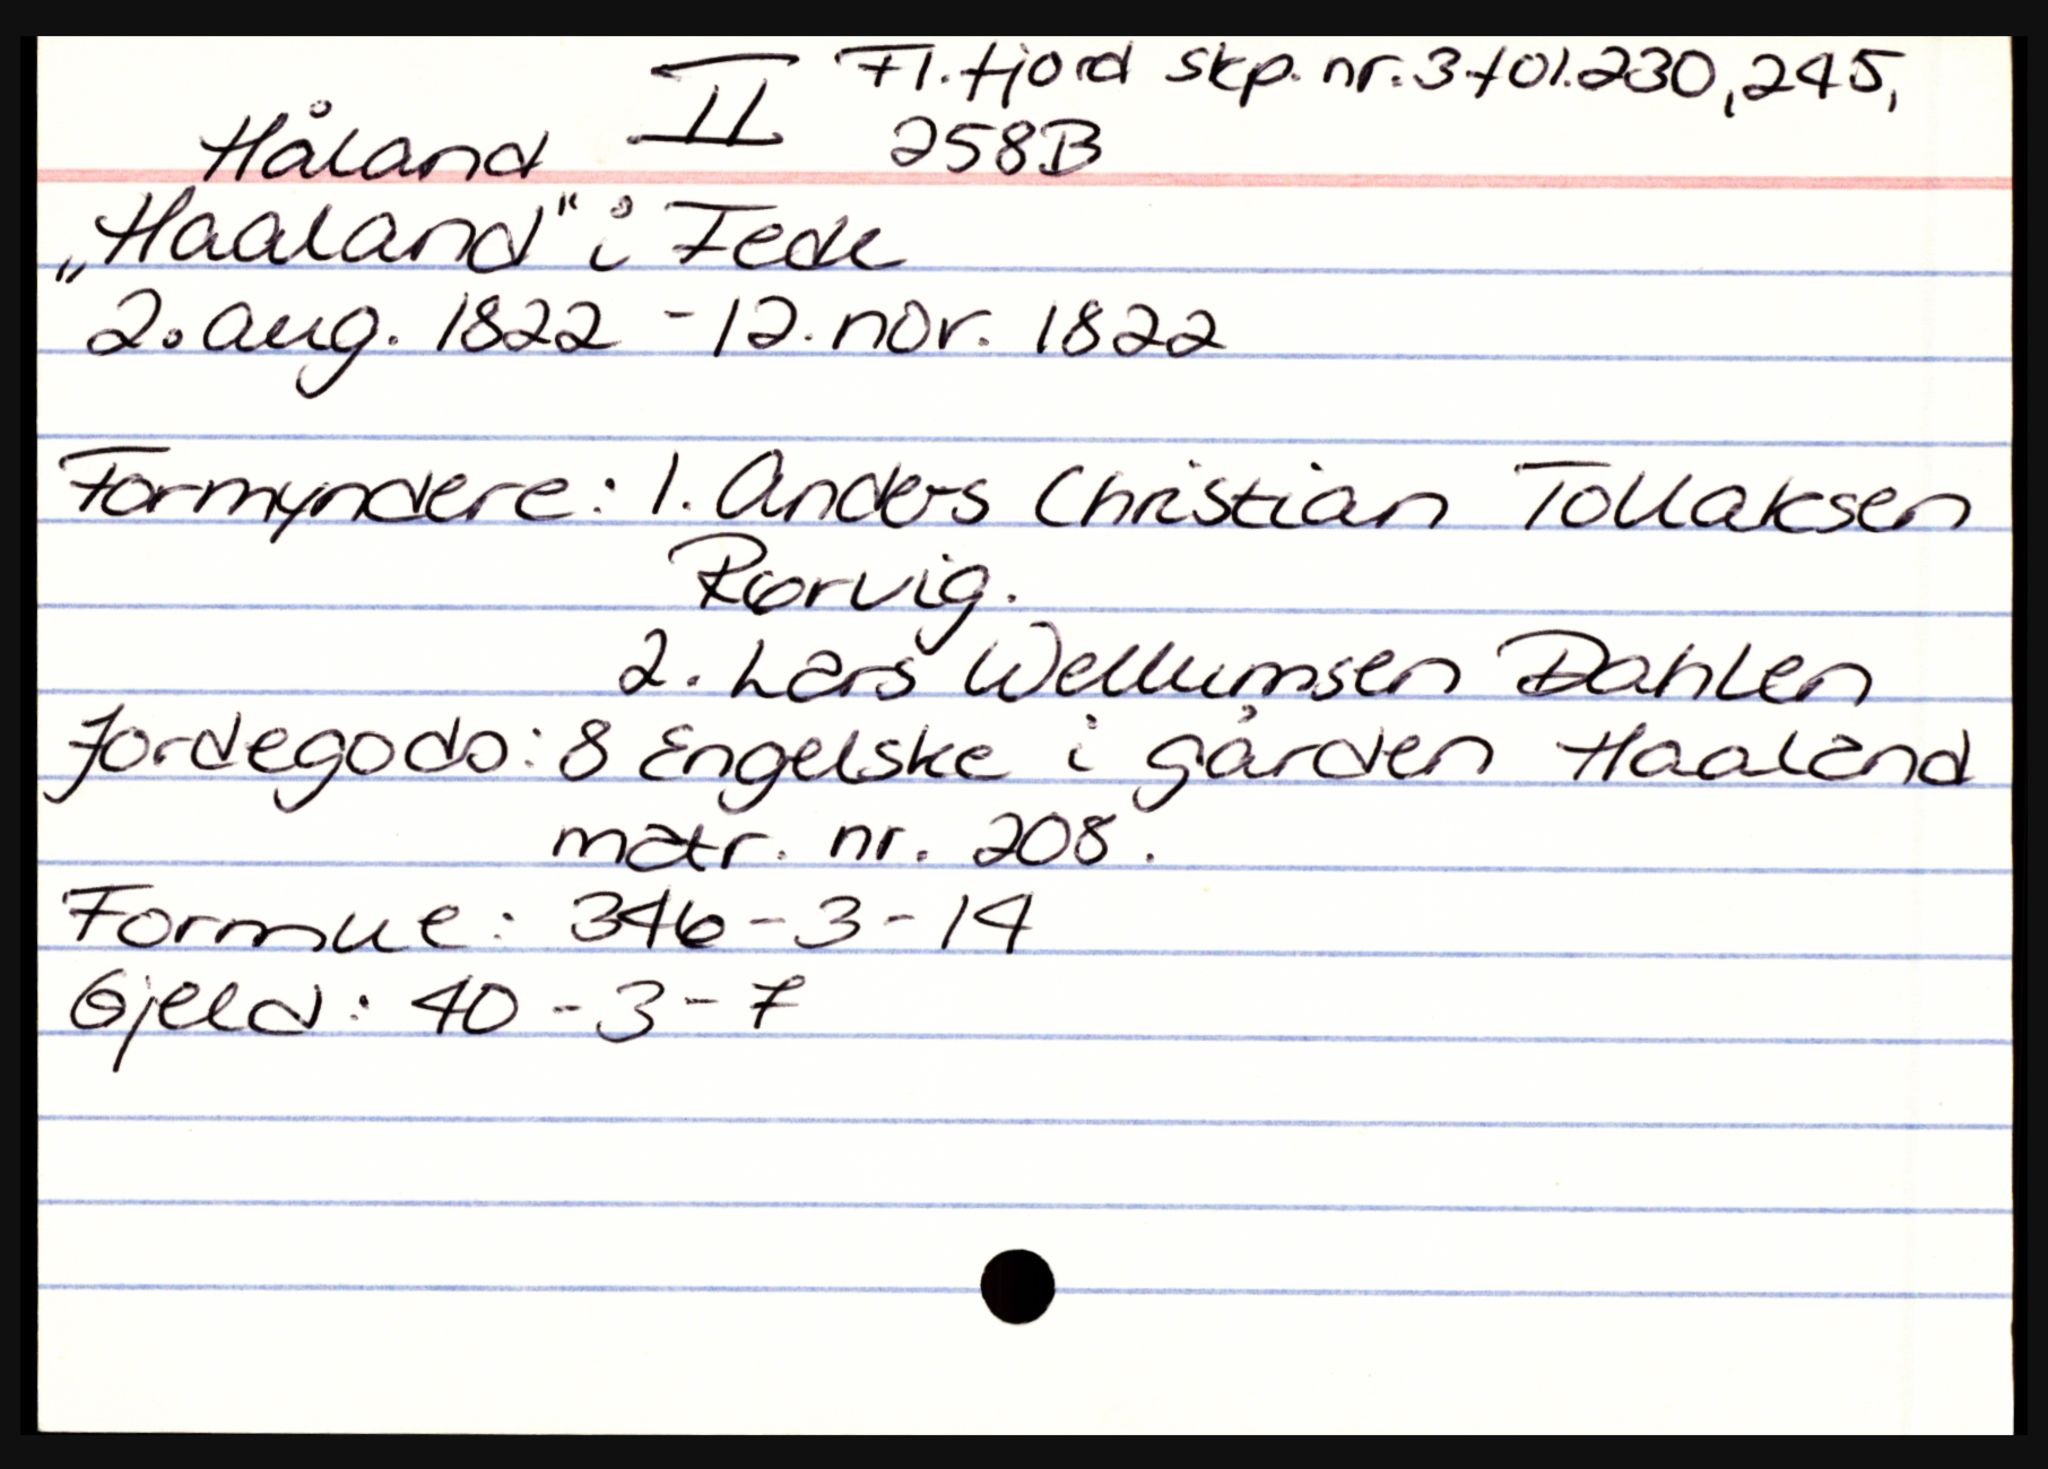 Håland II Fl.fjord skp. nr. 3 fol. 230, 245,
258B
„Haaland" i Fede
2. aug. 1822 - 12. nov. 1822
Formyndere: 1. Anders Christian Tollaksen
Rørvig.
2. Lars Wellumsen Dahlen
Jordegods: 8 Engelske i gården Haaland
matr. nr. 208.
Formue: 346 - 3 - 14
Gjeld: 40 - 3 - 7